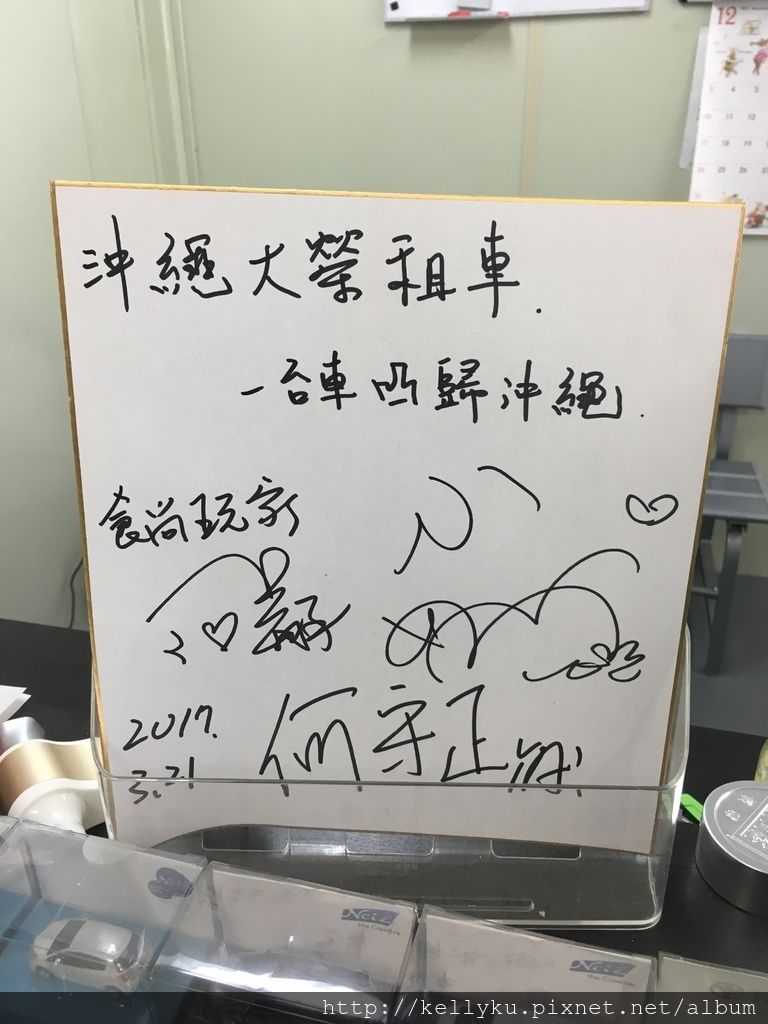 12
沖繩大榮租車.
一台車凸歸沖繩.
食尚玩家
2017.
3.21
何守正
Neiz
the Creative
Neiz
http://kellyku.pixnet.net/album